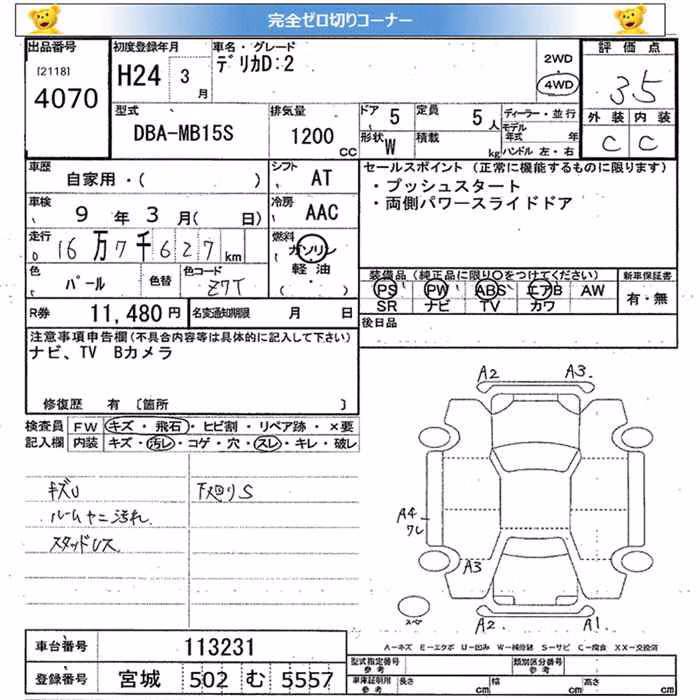 完全ゼロ切りコーナー
出品番号
[2118]
4070
初度登録年月
H24 3月
車名・グレード
デリカD:2
2WD
4WD
評価点
3.5
外装 内装
C C
型式
DBA-MB15S
排気量
1200 CC
ドア 5
形状 W
定員 5人
積載 kg
ディーラー・並行
モデル年式 年
ハンドル 左・右
車歴
自家用・( )
シフト
AT
車検
9年3月( 日)
冷房
AAC
走行
16万7千627km
燃料
ガソリン
軽油
( )
色
パール
色替
色コード
Z7T
R券 11,480円
名変通知期限 月 日
セールスポイント (正常に機能するものに限ります)
・プッシュスタート
・両側パワースライドドア
装備品(純正品に限り○をつけてください)
PS PW ABS エアB AW
SR ナビ TV カワ
新車保証書
有・無
後日品
注意事項申告欄(不具合内容等は具体的に記入して下さい)
ナビ、TV Bカメラ
修復歴 有 〔箇所 〕
検査員記入欄
FW キズ・飛石・ヒビ割・リペア跡・×要
内装 キズ・汚レ・コゲ・穴・スレ・キレ・破レ
キズU
ルームヤニ汚れ
スタッドレス
下廻りS
A2 A3
A4
ワレ
A3
スペア
A2 A1
A-キズ E-エクボ U-凹み W-補修跡 S-サビ C-腐食 XX-交換済
車台番号 113231
登録番号 宮城 502 む 5557
型式指定番号
参考
類別区分番号
参考
車庫証明用
参考
長さ cm 幅 cm 高さ cm